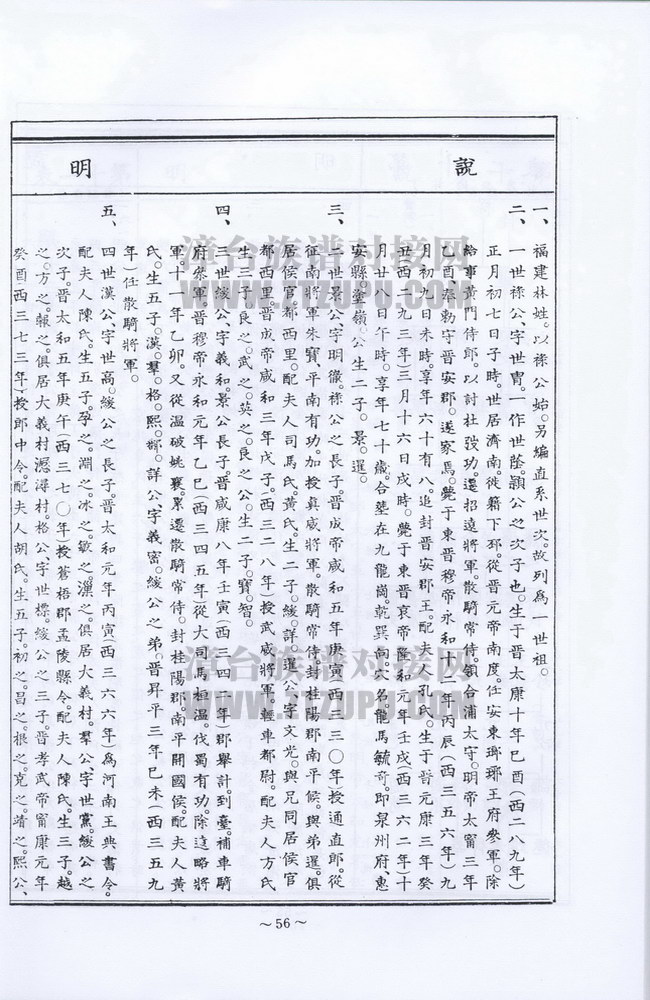 說
明
一、福建林姓。以祿公始。另編直系世次。故列為一世祖。
二、一世祿公、字世胄。一作世蔭。穎公之次子也。生于晉太康十年己酉(西二八九年)
正月初七日子時。世居濟南。徙籍下邳。從晉元帝南度。任安東瑯琊王府參軍。除
給事黃門侍郎。以討杜弢功。還招遠將軍。散騎常侍。領合浦太守。明帝太甯三年
乙酉奉勅守晉安郡。遂家焉。薨于東晉穆帝永和十二年丙辰(西三五六年)九
月初九日未時。享年六十有八。追封晉安郡王。配夫人孔氏。生于晉元康三年癸
丑西二九三年)三月十六日戌時。薨于東晉哀帝隆和元年壬戌(西三六二年)十
月廿八日午時。享年七十歲。合塟在九龍崗。乾巽向。穴名。龍馬毓奇。即泉州府、惠
安縣。塗嶺。公生二子。景。暹。
三、二世景公、字明徹。祿公之長子。晉成帝咸和五年庚寅(西三三〇年)授通直郎。從
征南將軍朱寶、平南有功。加授真威將軍。散騎常侍。封桂陽郡南平候。與弟暹。俱
居侯官。都西里。配夫人司馬氏。黃氏。生二子。緩。詳。暹公、字文光。與兄同居侯官
都西里。晉成帝咸和三年戊子(西三二八年)授武威將軍。輕車都尉。配夫人方氏
生三子。良之。武之。英之。良之公。生二子。寶。智。
四、三世緩公、字義和。景公長子。晉咸康八年壬寅(西三四二年)郡舉計。到臺。補車騎
府叅軍。晉穆帝永和元年乙巳(西三四五年)從大司馬桓溫。伐蜀有功。除遠略將
軍。十一年乙卯。又從溫破姚襄。累遷散騎常侍。封桂陽郡南平開國侯。配夫人黃
氏。生五子。漢。羣。格。熙。鄀。詳公、字義密。緩公之弟。晉昇平三年己未(西三五九
年)任散騎將軍。
五、四世漢公、字世高。緩公之長子。晉太和元年丙寅(西三六六年)為河南王典書令。
配夫人陳氏。生五子。孕之。淵之。冰之。敏之。漁之。俱居大義村。羣公、字世黨。緩公之
次子。晉太和五年庚午(西三七〇年)授蒼梧郡孟陵縣令。配夫人陳氏。生三子。越
之。方之。報之。俱居大義村。湖潯村。格公、字世標。緩公之三子。晉孝武帝甯康元年
癸酉西三七三年)授郎中令。配夫人胡氏。生五子。初之。昌之。根之。克之。靖之。熙公、
~56~
漳台族谱对接网
WWW.ZTZUPU.COM
漳台族谱对接网
WWW.ZTZUPU.COM